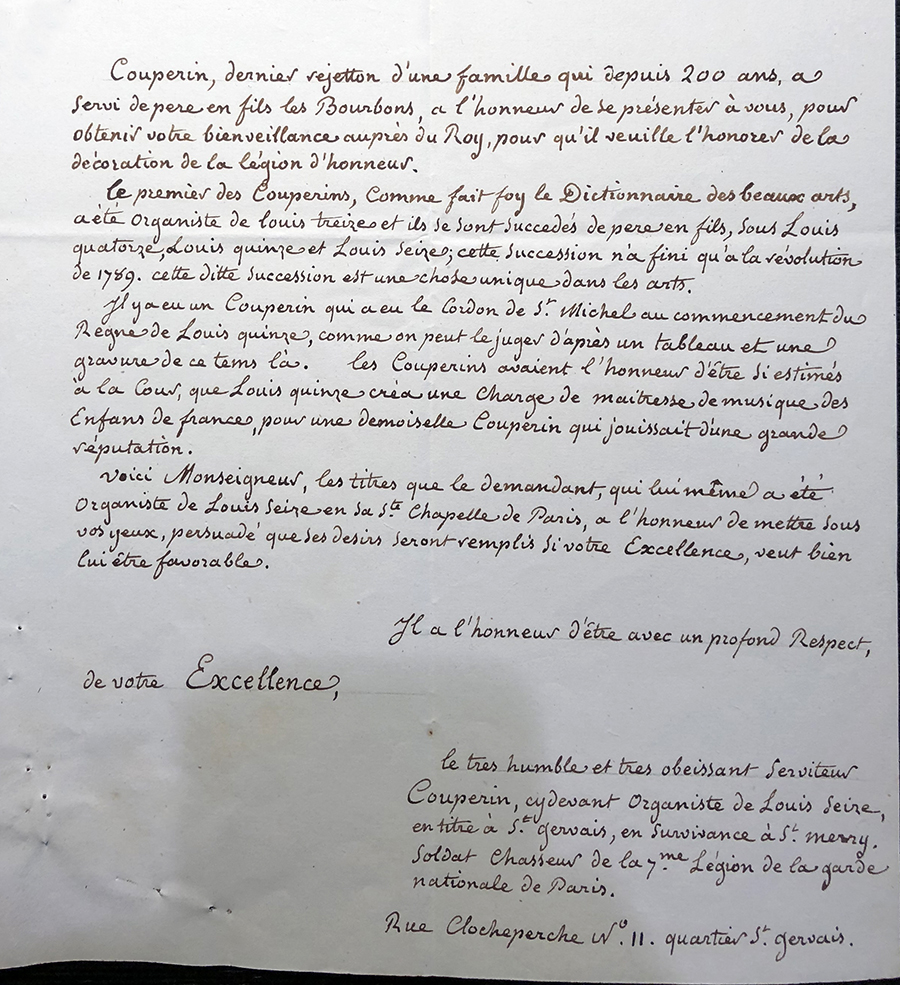 Couperin, dernier rejetton d'une famille qui depuis 200 ans, a
servi de pere en fils les Bourbons, a l'honneur de se présenter à vous, pour
obtenir votre bienveillance auprès du Roy, pour qu'il veuille l'honorer de la
décoration de la légion d'honneur.
le premier des Couperins, Comme fait foy le Dictionnaire des beaux arts,
a été Organiste de louis treize et ils se sont succedés de pere en fils, sous Louis
quatorze, Louis quinze et Louis Seize; cette succession n'a fini qu'à la révolution
de 1789. cette ditte succession est une chose unique dans les arts.
Il y a eu un Couperin qui a eu le Cordon de St. Michel au commencement du
Regne de Louis quinze, comme on peut le juger d'après un tableau et une
gravure de ce tems là. les Couperins avaient l'honneur d'être si estimés
à la Cour, que Louis quinze créa une Charge de maitresse de musique des
Enfans de france, pour une demoiselle Couperin qui jouissait d'une grande
réputation.
voici Monseigneur, les titres que le demandant, qui lui même a été
Organiste de Louis Seize en sa Ste Chapelle de Paris, a l'honneur de mettre sous
vos yeux, persuadé que ses desirs seront remplis si votre Excellence, veut bien
lui être favorable.
Il a l'honneur d'être avec un profond Respect,
de votre Excellence,
le tres humble et tres obeissant Serviteur
Couperin, cydevant Organiste de Louis Seize,
en titre à St. gervais, en Survivance à St. merry.
Soldat Chasseur de la 7.me Légion de la garde
nationale de Paris.
Rue Clocheperche No. 11. quartier St. gervais.